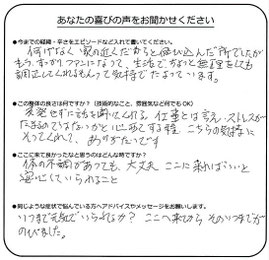 あなたの喜びの声をお聞かせください
●今までの経緯・辛さをエピソードなど入れて書いてください。
何げなく家の近くだからと飛び込んだ所でしたが
もう、すっかりファンになって、生活でちょっと無理をしても
調正してくれるもんって気持でたよっています。
●この整体の良さは何ですか?(技術のなこと、雰囲気など何でもOK)
来院せずに話を聞いてくれる。仕事とは言え、ストレスが
たまるのではないかと心配する程、こちらの気持に
そってくれて、ありがたいです
●ここに来て良かったなと思うのはどんな時ですか?
体の不調があっても、大丈夫 ここに来ればいいと
安心していられること
●同じような症状で悩んでいる方へアドバイスやメッセージをお願いします。
いつまで元気でいられるか? ここへ来てから そのいつまでが
のびました。